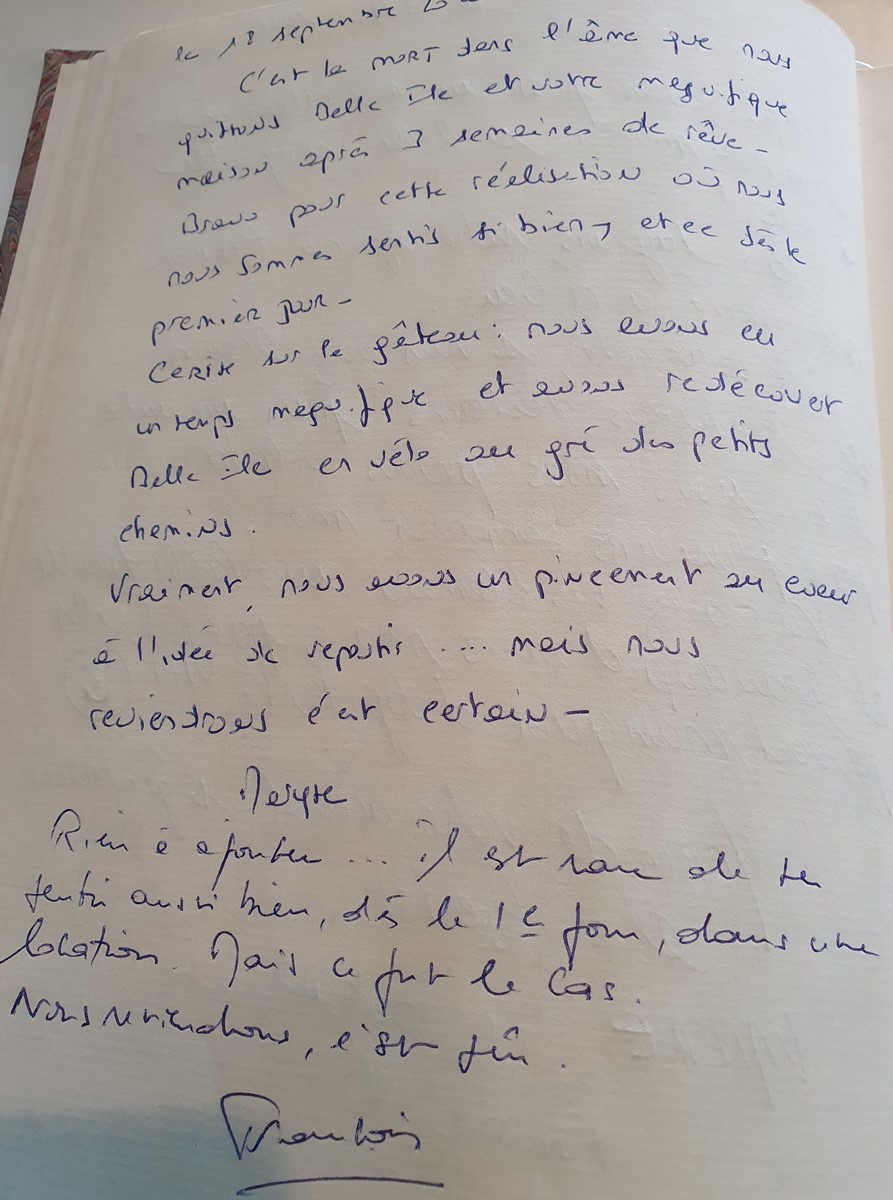 le 18 septembre
C'est la mort dans l'âme que nous
quittons Belle Ile et votre magnifique
maison après 3 semaines de rêve -
Bravo pour cette réalisation où nous
nous sommes sentis si bien, et ce dès le
premier jour -
Cerise sur le gâteau : nous avons eu
un temps magnifique et avons redécouvert
Belle Ile en vélo au gré des petits
chemins.
Vraiment, nous avons un pincement au coeur
à l'idée de repartir .... mais nous
reviendrons c'est certain -
Maryse
Rien à ajouter ... il est rare de se
sentir aussi bien, dès le 1e jour, dans une
location. Mais ce fut le cas.
Nous reviendrons, c'est sûr.